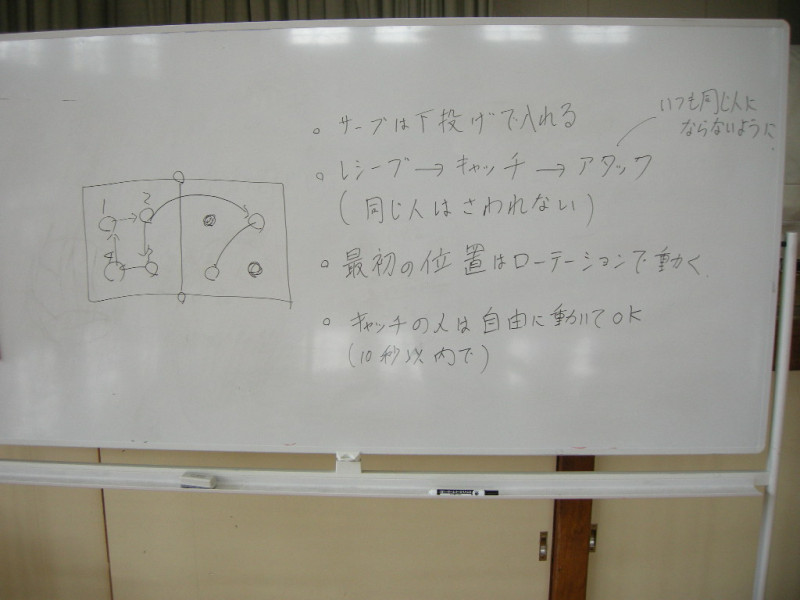 。サーブは下投げで入れる
いつも同じ人に
ならないように
。レシーブ→キャッチ→アタック
(同じ人はさわれない)
。最初の位置はローテーションで動く
。キャッチの人は自由に動いてOK
(10秒以内で)
1 2
4 3